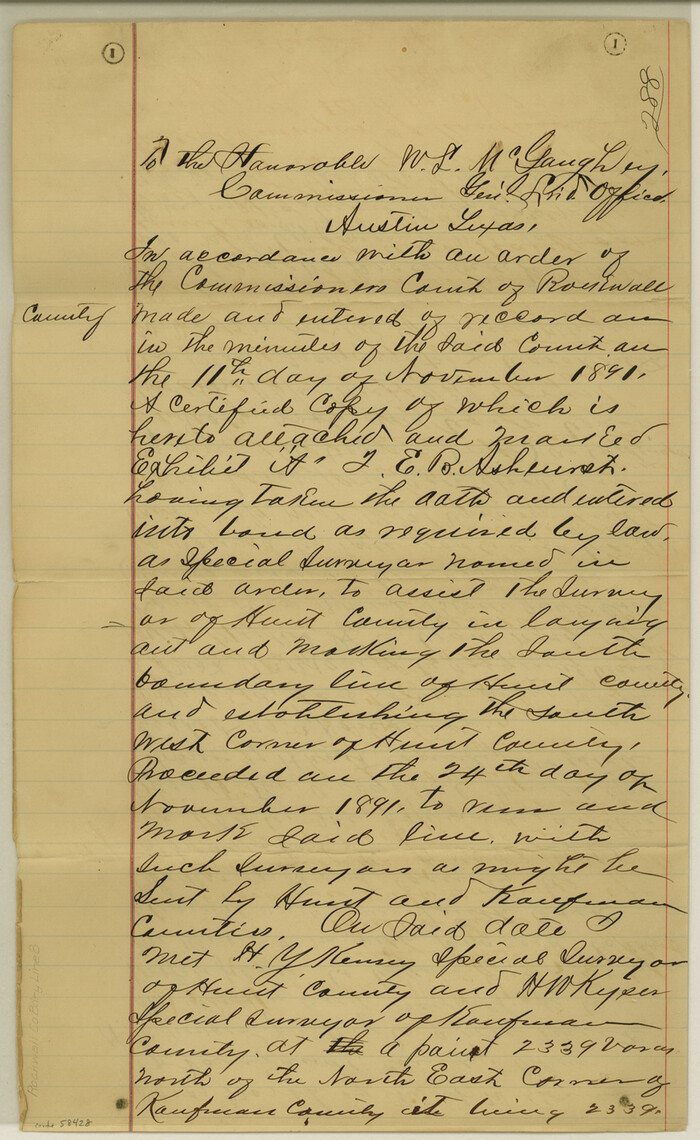 1
1
288
To the Honorable W. L. McGaughey,
Commissioner Gen'l Land Office.
Austin Texas,
In accordance with an order of
the Commissioners Court of Rockwall
County made and entered of reccord an
in the minutes of the said Court on
the 11th day of November 1891.
A Certified Copy of which is
hereto attached and marked
Exhibit "A" I, E. B. Ashurst.
having taken the oath and entered
into bond as required by law,
as Special Surveyor named in
said order, to assist the Survey
or of Hunt County in laying
out and marking the South
boundary line of Hunt county,
and establishing the south
west corner of Hunt County,
Proceeded on the 24th day of
November 1891, to run and
mark said line. with
such surveyors as might be
sent by Hunt and Kaufman
Counties. On said date I
met H. Y. Kenney Special Surveyor
of Hunt County and H W Kyser
Special Surveyor of Kaufman
County. at a point 2339 varas
north of the North East Corner of
Kaufman County it being 2339
Rockwall Co. Bdry. Line 3
58428